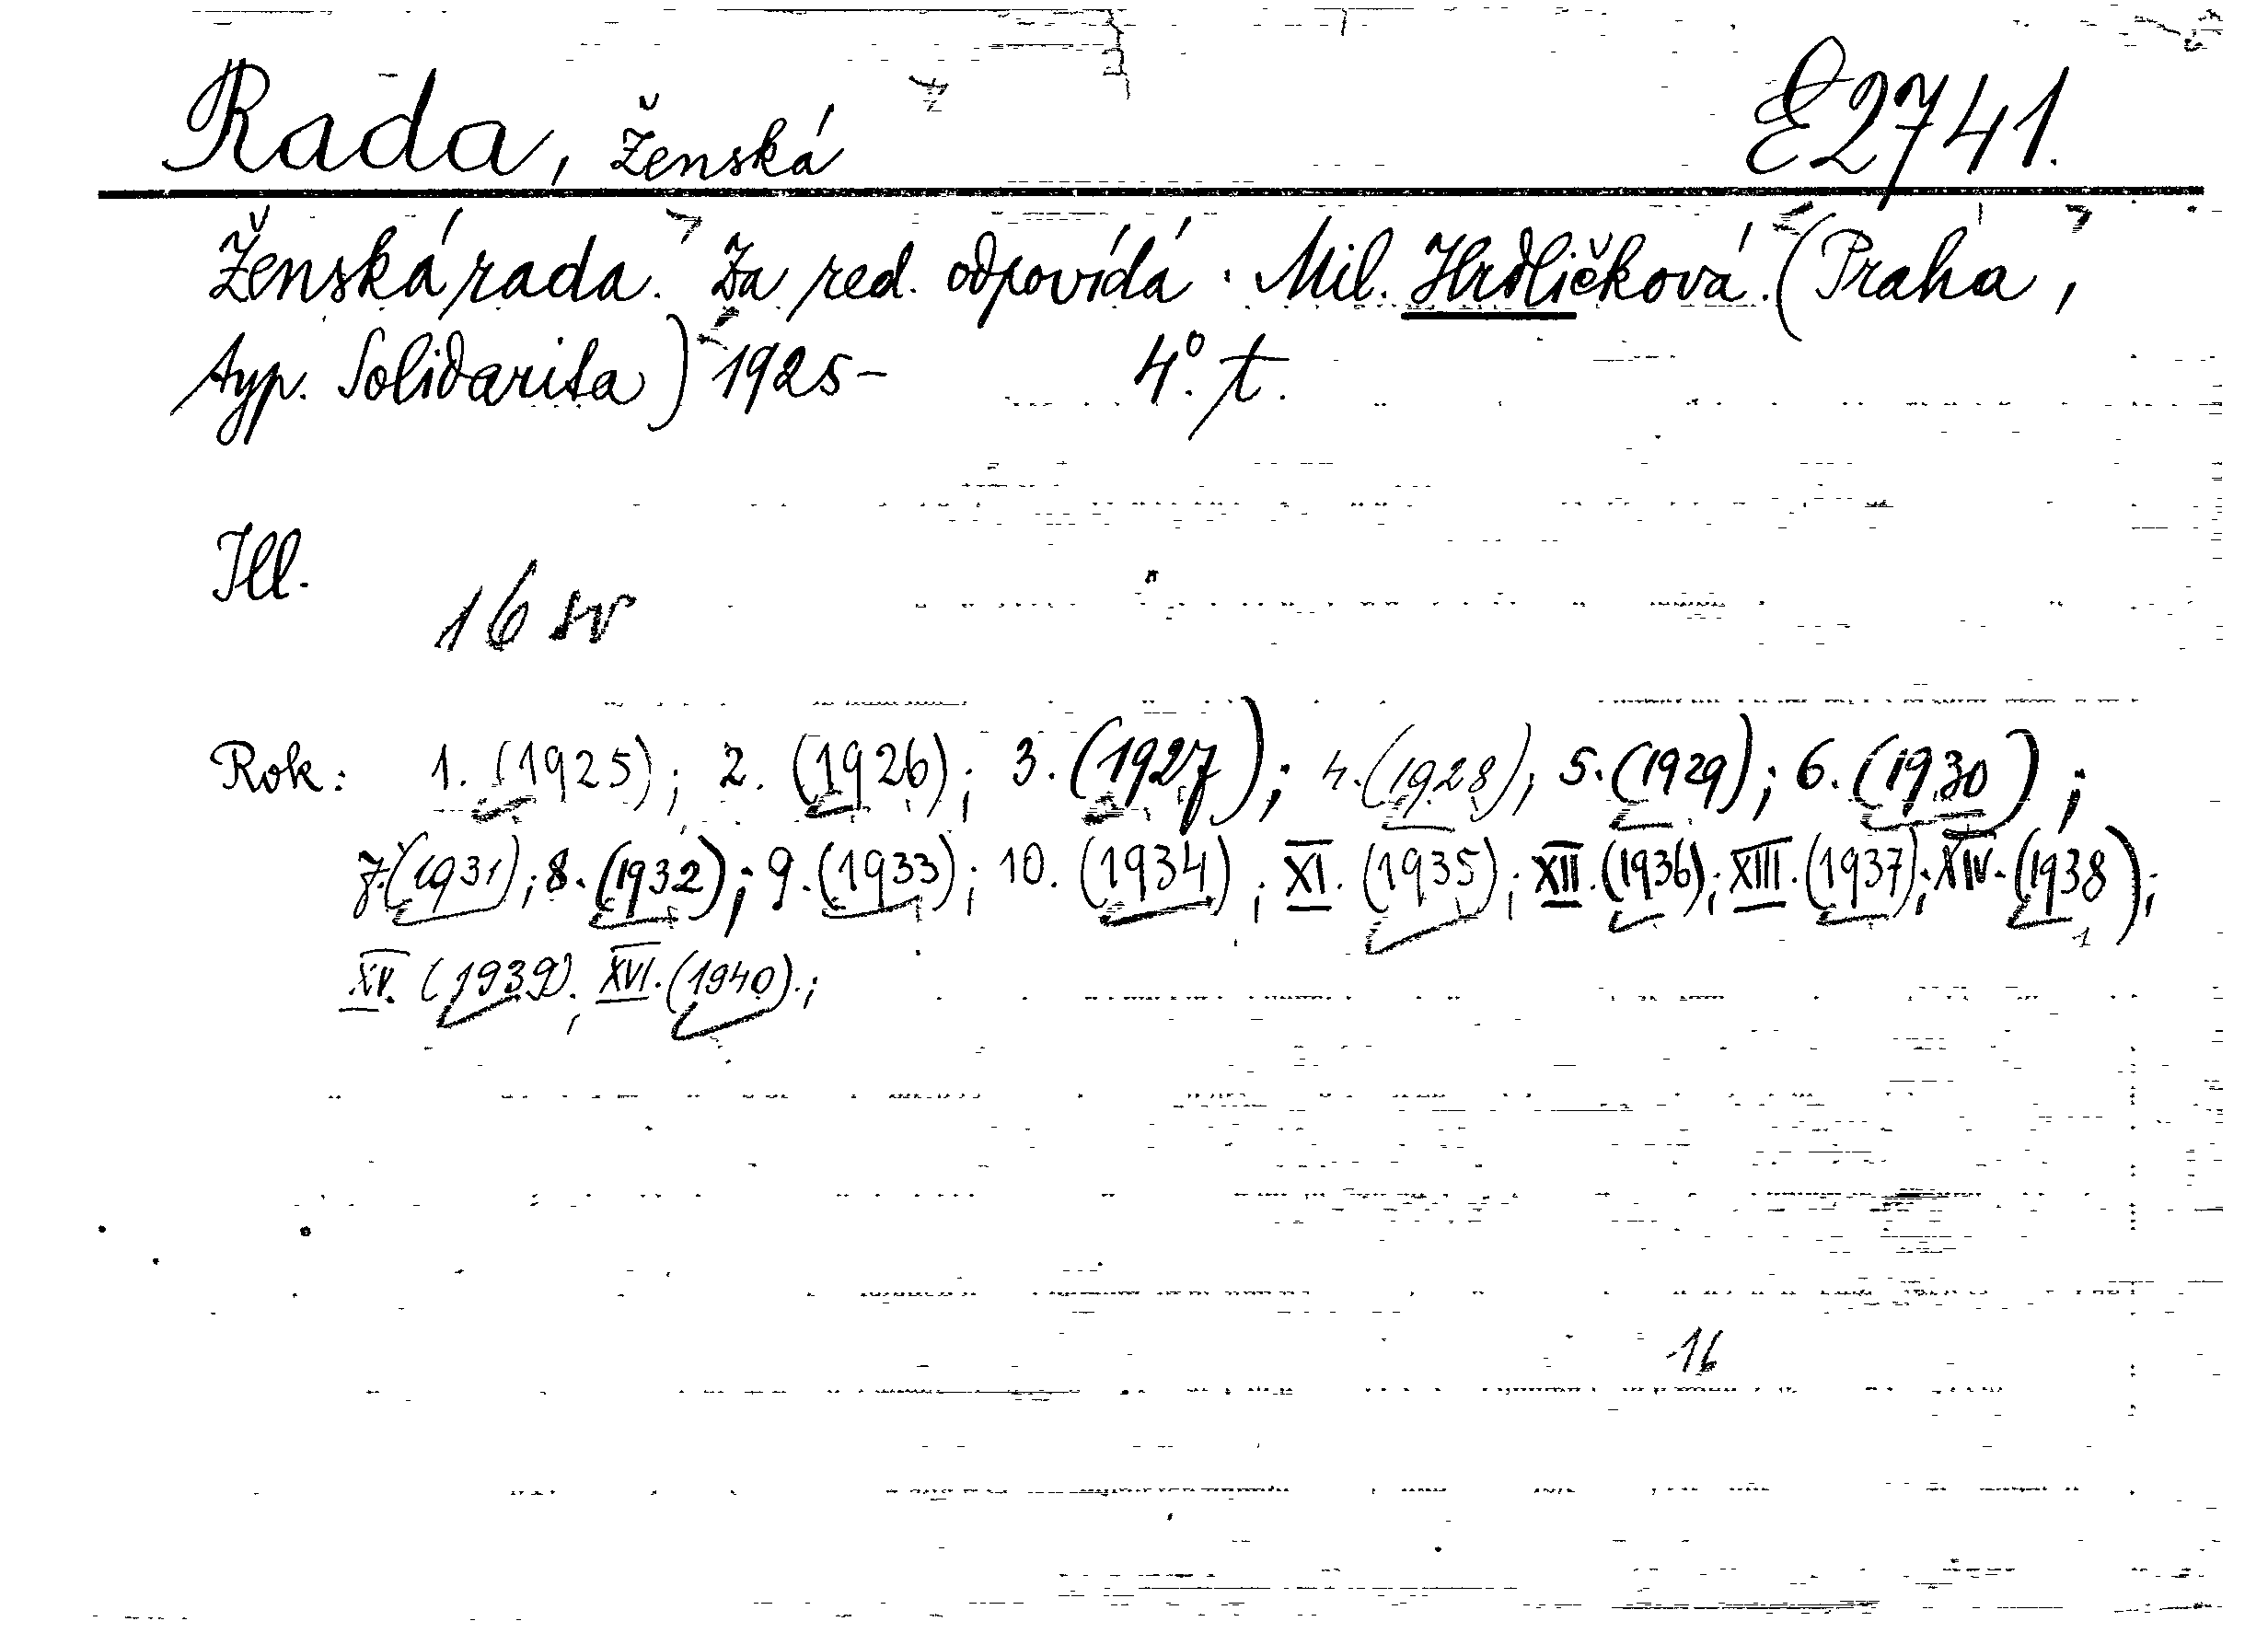 Rada, ženská E2741.
Ženská rada. Za red. odpovídá: Mil. Hrdličková. (Praha,
typ. Solidarita) 1925- 4°. t.
Ill.
16 sv
Rok: 1. (1925); 2. (1926); 3. (1927); 4. (1928); 5. (1929); 6. (1930);
7. (1931); 8. (1932); 9. (1933); 10. (1934); XI. (1935); XII. (1936); XIII. (1937); XIV. (1938);
XV. (1939); XVI. (1940).;
16